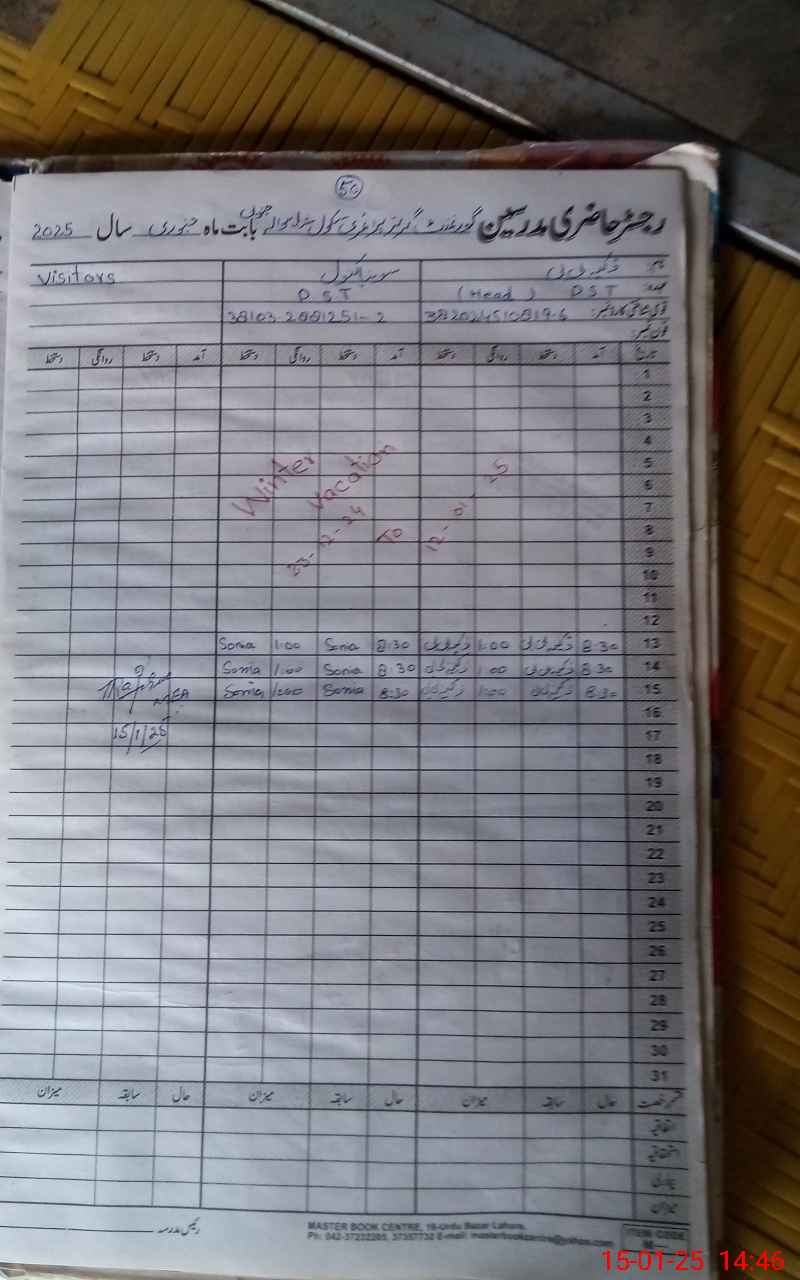 50
رجسٹر حاضری مدرسین گورنمنٹ گرلز پرائمری سکول بابت ماہ جنوری سال 2025
نام: Visitors
عہدہ: PST (Head) PST
قومی شناختی کارڈ نمبر: 38103-2881251-2
فون نمبر:
تاریخ آمد دستخط روانگی دستخط آمد دستخط روانگی دستخط آمد دستخط روانگی دستخط
1
2
3
4
5
6
7
8
9
10
11
12
Winter Vacation
23-12-24 To 12-01-25
13 8:30 1:00 8:30 Sonia 1:00 Sonia
14 8:30 1:00 8:30 Sonia 1:00 Sonia
15 8:30 1:00 8:30 Sonia 1:00 Sonia
MEA
15/1/25
16
17
18
19
20
21
22
23
24
25
26
27
28
29
30
31
قسم رخصت حال سابقہ میزان حال سابقہ میزان حال سابقہ میزان
اتفاقیہ
استحقاقیہ
بیماری
میزان
رئیس مدرسہ
MASTER BOOK CENTRE, 16-Urdu Bazar Lahore.
Ph: 042-37232265, 37357732 E-mail: masterbookcentre@yahoo.com
ITEM CODE
15-01-25 14:46